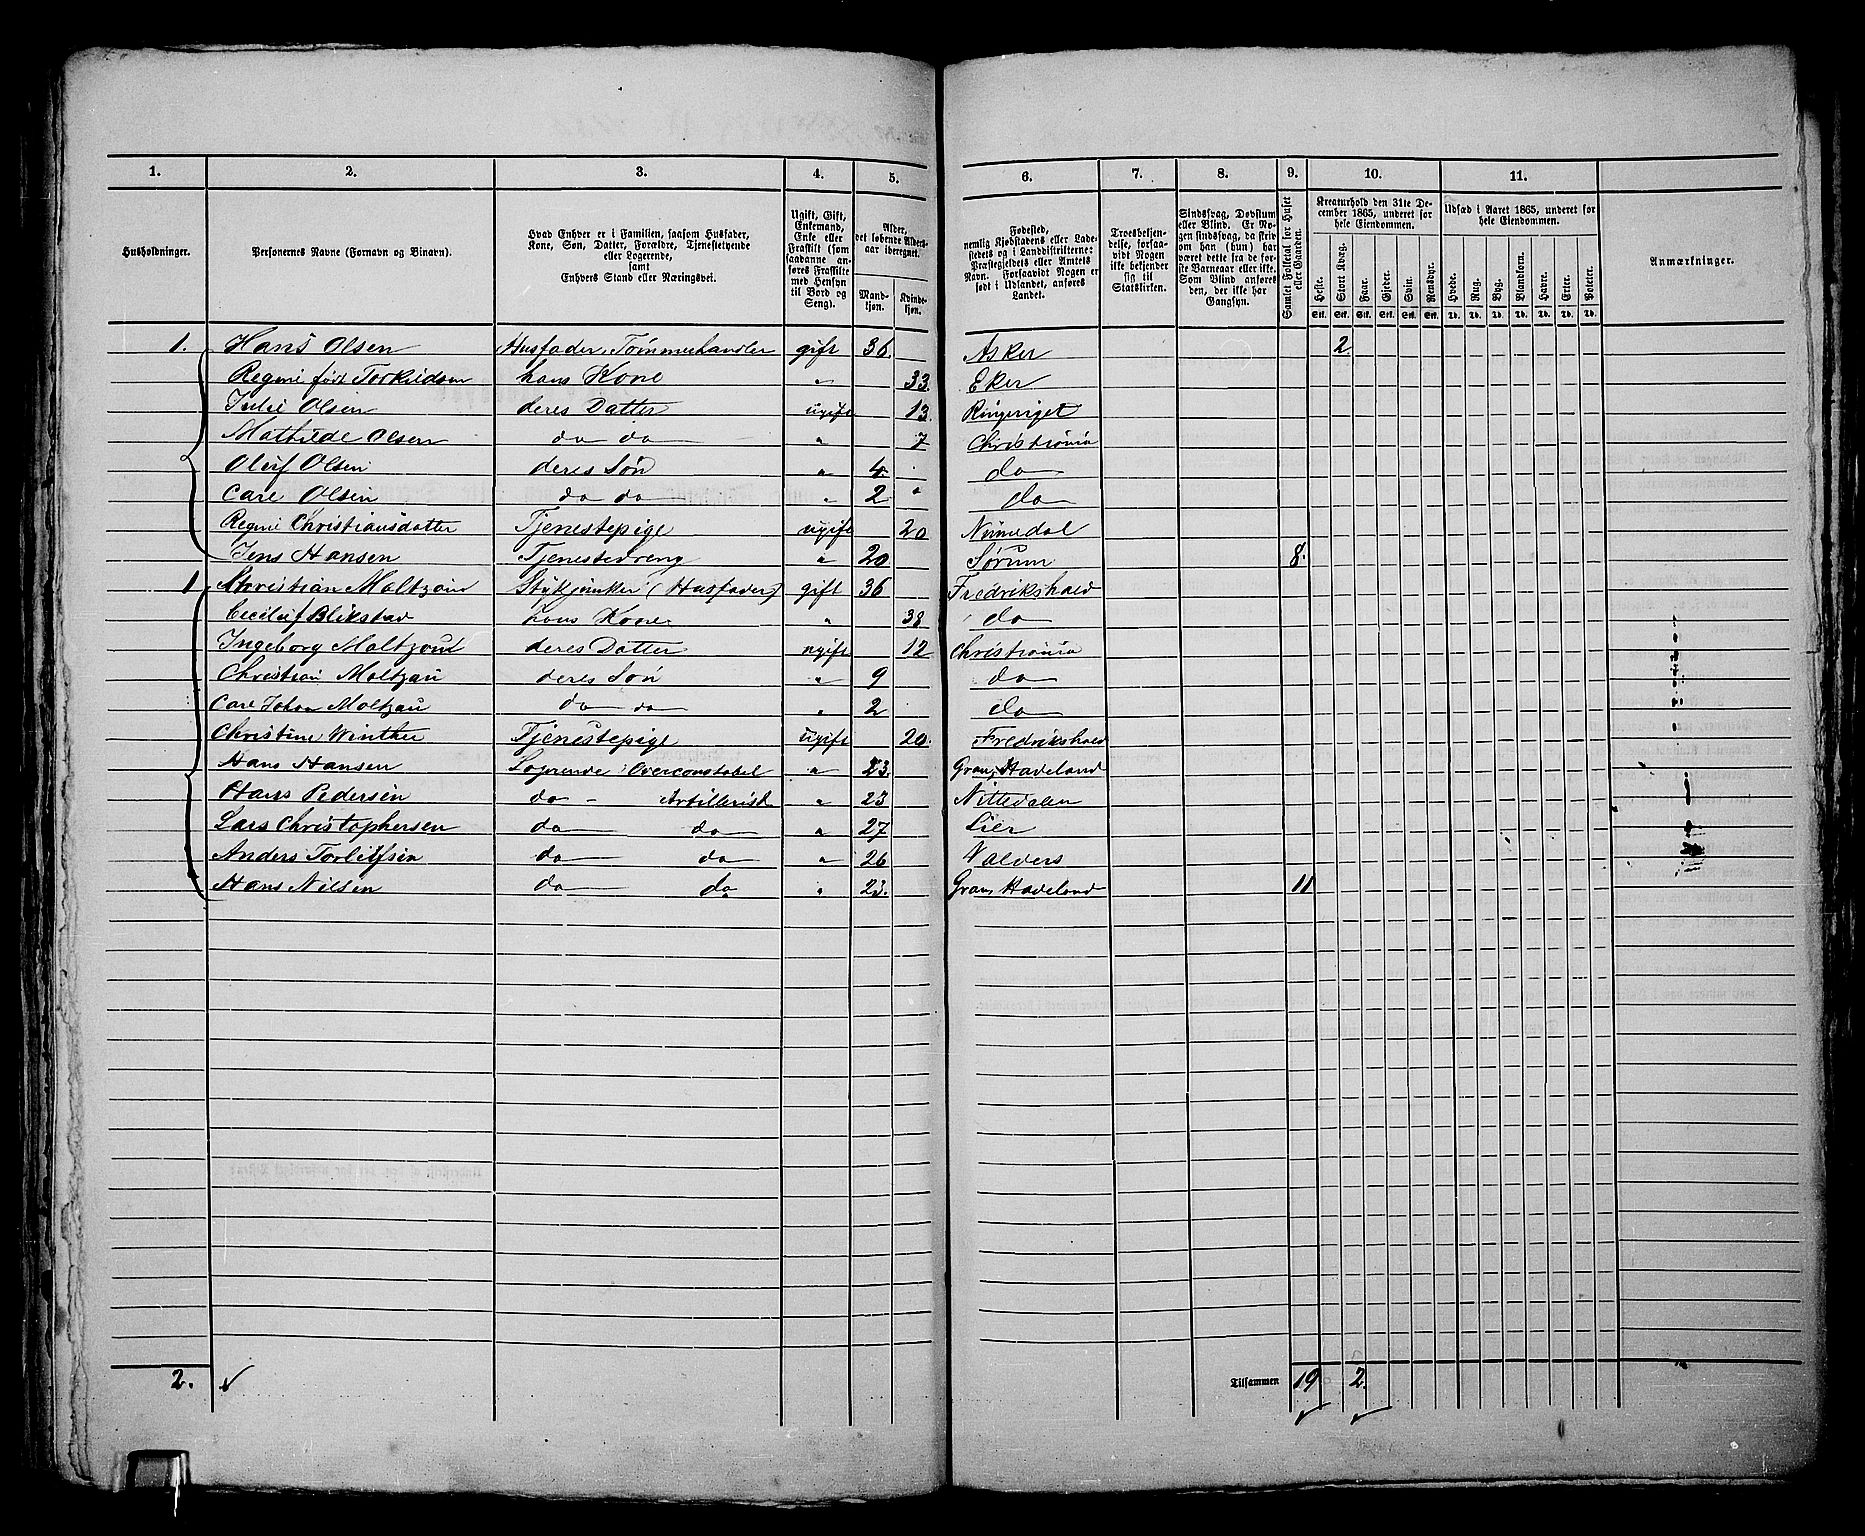 1. 2. 3. 4. 5. 6. 7. 8. 9. 10. 11.
Husholdninger.
Personernes Navne (Fornavn og Binavn).
Hvad Enhver er i Familien, saasom Husfader, Kone, Søn, Datter, Forældre, Tjenestetyende eller Logerende, samt Enhvers Stand eller Næringsvei.
Ugift, Gift, Enkemand, Enke eller Fraskilt (som saadanne anføres Fraskilte med Hensyn til Bord og Seng).
Alder, det løbende Alders-aar iberegnet.
Mandkjøn. Kvindekjøn.
Fødested, nemlig Kjøbstadens eller Ladestedets og i Landdistrikterne: Præstegjeldets eller Amtets Navn. Forsaavidt Nogen er født i Udlandet, anføres Landet.
Troesbekjendelse, forsaavidt Nogen ikke bekjender sig til Statskirken.
Sindssvag, Døvstum eller Blind. Er Nogen sindssvag, da skrives om han (hun) har været dette fra de første Barneaar eller ikke. Som Blind anføres den, der ikke har Gangsyn.
Samlet Folketal for Huset eller Gaarden.
Kreaturhold den 31te December 1865, underet for hele Eiendommen.
Heste. Stort Kvæg. Faar. Gjeder. Svin. Rensdyr.
Udsæd i Aaret 1865, underet for hele Eiendommen.
Hvede. Rug. Byg. Blankorn. Havre. Erter. Poteter.
Anmærkninger.
Stk. Stk. Stk. Stk. Stk. Stk. Td. Td. Td. Td. Td. Td. Td.
1. Hans Olsen Husfader, Tømmerhandler gift 36. Asker 2
Regine født Torkildsen hans Kone " 33. Eker
Julie Olsen deres Datter ugift 13. Ringeriget
Mathilde Olsen do do " 7 Christiania
Oluf Olsen deres Søn " 4. do
Carl Olsen do do " 2 do
Regine Christiansdatter Tjenestepige ugift 20 Numedal
Jens Hansen Tjenestedreng " 20 Sørum 8.
1 Christian Moltzau Stykjunker (Husfader) gift 36 Fredrikshald
Blikstad hans Kone " 38 do
Ingeborg Moltzau deres Datter ugift 12 Christiania
Christian Moltzau deres Søn " 9 do
Carl Johan Moltzau do do " 2 do
Christine Winther Tjenestepige ugift 20. Fredrikshald
Hans Hansen Logerende Overconstabel " 23. Gran, Hadeland
Hans Pedersen do - Artillerist " 23 Nittedalen
Lars Christophersen do do " 27 Lier
Anders Torleifsen do do " 26 Valders
Hans Nilsen do do " 23. Gran, Hadeland 11
2. Tilsammen 19 2.